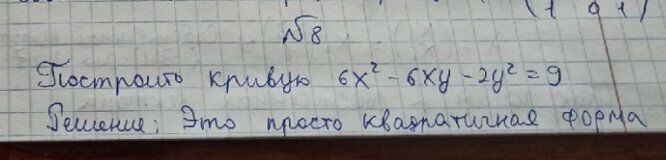 (1 0 1)
№8
Построить кривую 6x² - 6xy - 2y² = 9
Решение: Это просто квадратичная форма